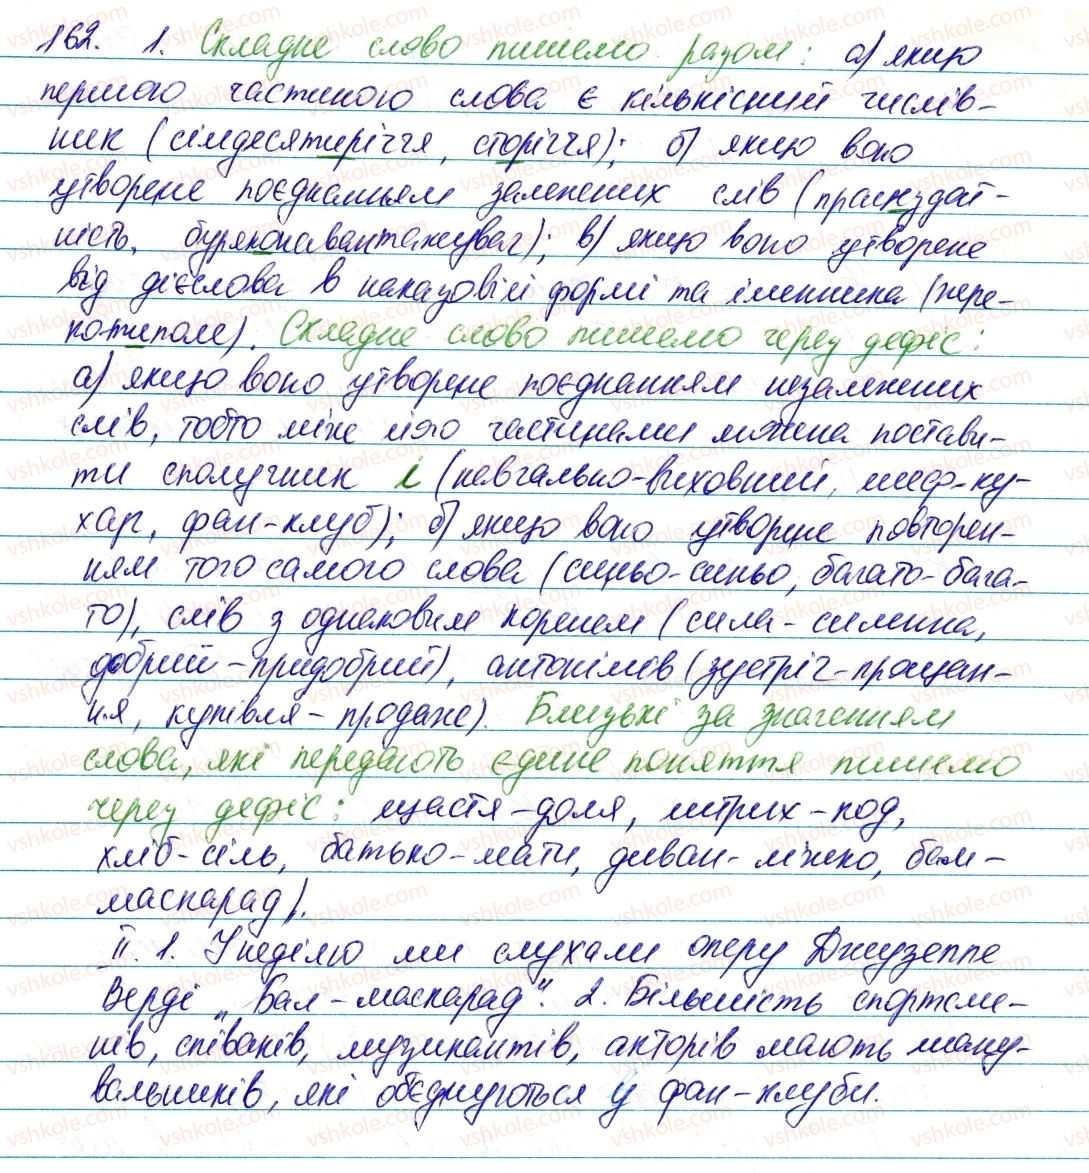 162. 1. Складне слово пишемо разом: а) якщо
першою частиною слова є кількісний числів-
ник (сімдесятиріччя, сторіччя); б) якщо воно
утворене поєднанням залежних слів (працездат-
ність, буряконавантажувач); в) якщо воно утворене
від дієслова в наказовій формі та іменника (пере-
котиполе). Складне слово пишемо через дефіс:
а) якщо воно утворене поєднанням незалежних
слів, тобто між його частинами можна постави-
ти сполучник і (навчально-виховний, шеф-ку-
хар, фан-клуб); б) якщо воно утворене повторен-
ням того самого слова (синьо-синьо, багато-бага-
то), слів з однаковим коренем (сила-силенна,
добрий-придобрий), антонімів (зустріч-прощан-
ня, купівля-продаж). Близькі за значенням
слова, які передають єдине поняття пишемо
через дефіс: щастя-доля, штрих-код,
хліб-сіль, батько-мати, диван-ліжко, бал-
маскарад).
ІІ. 1. У неділю ми слухали оперу Джузеппе
Верді „Бал-маскарад". 2. Більшість спортсме-
нів, співаків, музикантів, акторів мають шану-
вальників, які об'єднуються у фан-клуби.